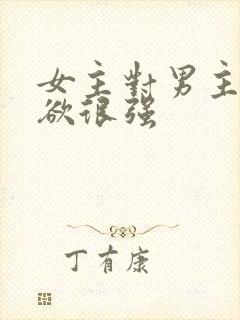 女主對男主
欲很强
丁有康